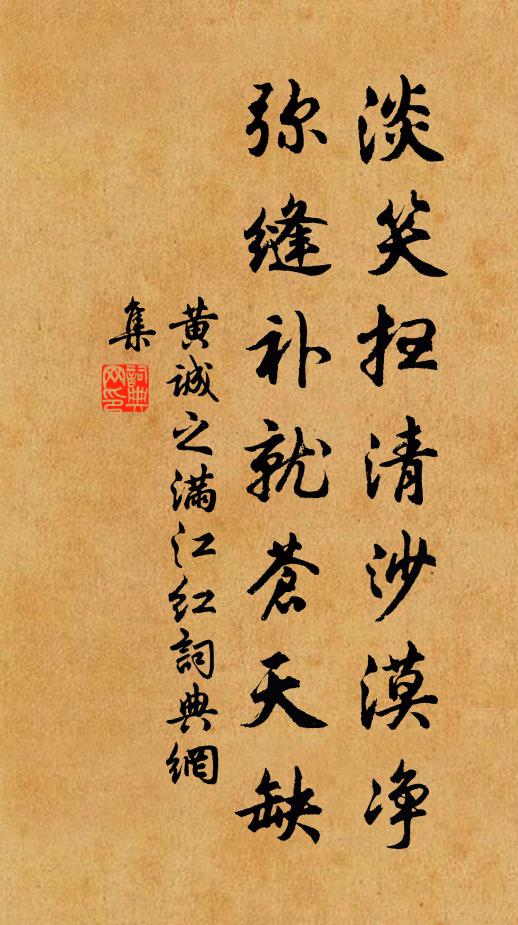 淡笑扫清沙漠净
弥缝补就苍天缺
黄诚之满江红詞典網
集
詞典
网印